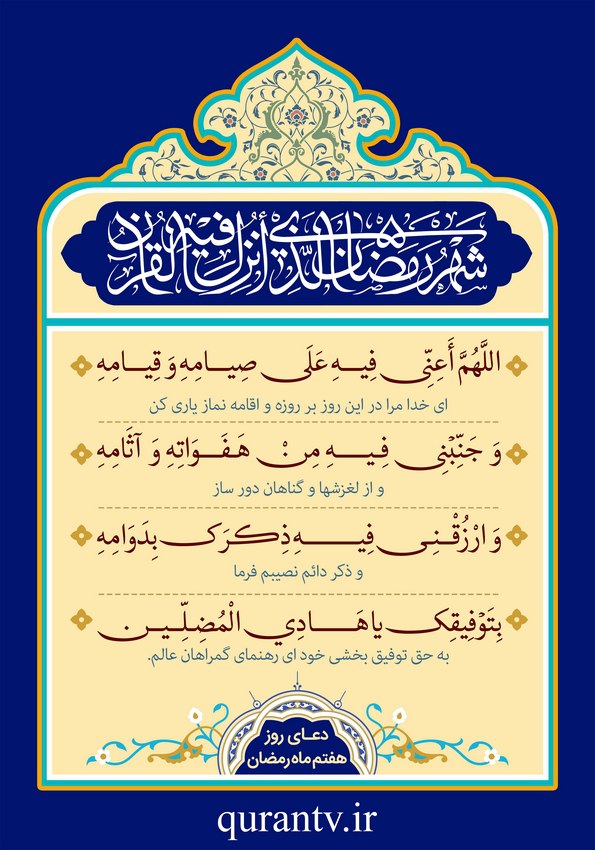 شَهْرُ رَمَضَانَ الَّذِي أُنْزِلَ فِيهِ الْقُرْآنُ
اللَّهُمَّ أَعِنِّی فِیهِ عَلَی صِیامِهِ وَ قِیامِهِ
ای خدا مرا در این روز بر روزه و اقامه نماز یاری کن
وَ جَنِّبْنِی فِیهِ مِنْ هَفَوَاتِهِ وَ آثَامِهِ
و از لغزشها و گناهان دور ساز
وَ ارْزُقْنِی فِیهِ ذِکرَک بِدَوَامِهِ
و ذکر دائم نصیبم فرما
بِتَوْفِیقِک یا هَادِي الْمُضِلِّین
به حق توفیق بخشی خود ای رهنمای گمراهان عالم.
دعـای روز
هفتم ماه رمضان
qurantv.ir